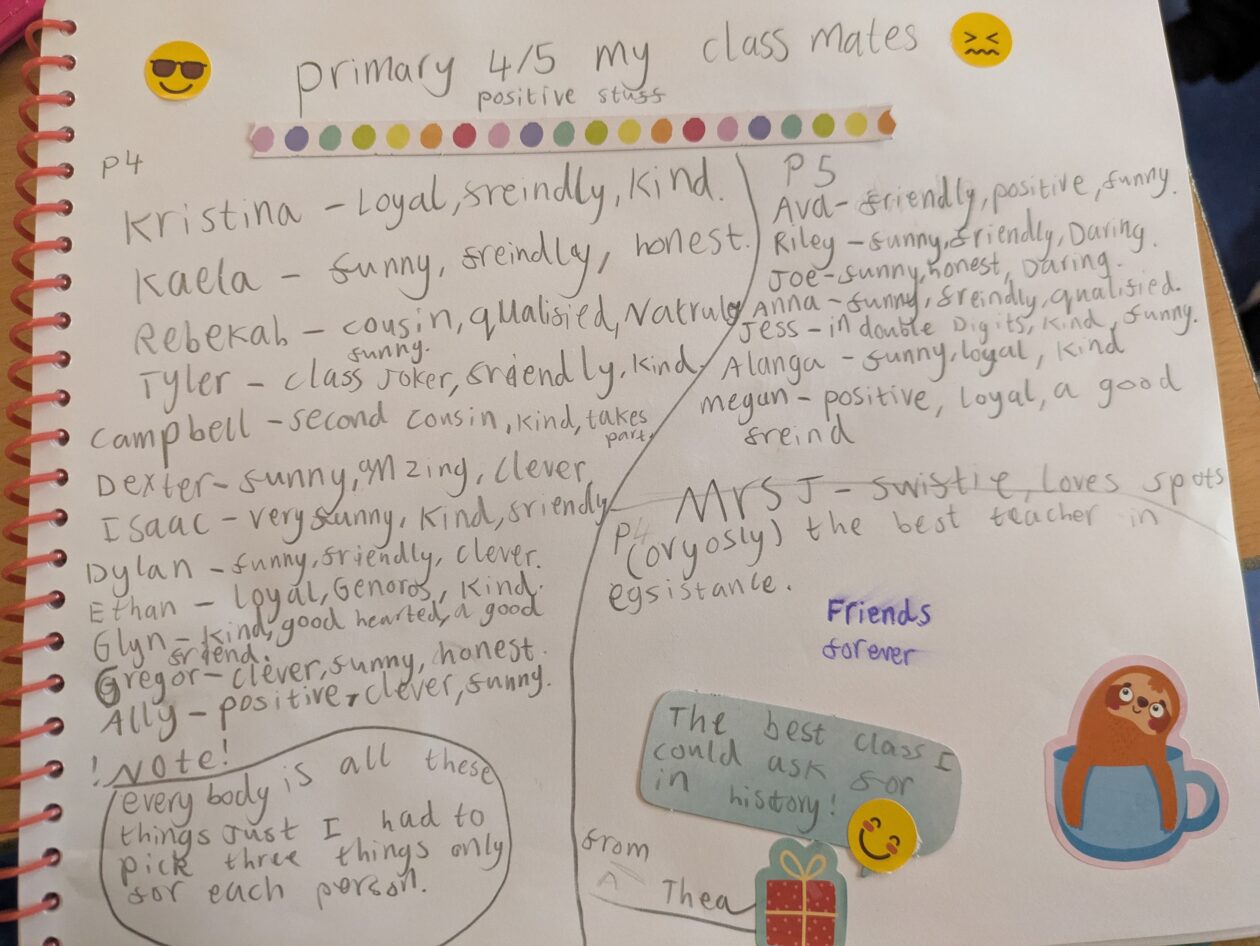 primary 4/5 my class mates
positive stuff
P4
Kristina - Loyal, freindly, Kind.
Kaela - funny, freindly, honest.
Rebekah - cousin, qualified, Natruly
funny.
Tyler - class Joker, friendly, kind.
Campbell - second cousin, kind, takes
part.
Dexter - funny, amzing, clever
Isaac - very funny, kind, friendly
Dylan - funny, friendly, clever.
Ethan - Loyal, Genoros, kind.
Glyn - kind, good hearted, a good
friend.
Gregor - clever, funny, honest.
Ally - positive, clever, funny.
! Note!
every body is all these
things Just I had to
pick three things only
for each person.
P5
Ava - friendly, positive, funny.
Riley - funny, friendly, Daring.
Joe - funny, honest, Daring.
Anna - funny, freindly, qualified.
Jess - in double Digits, kind, funny.
Alanga - funny, loyal, kind
megan - positive, Loyal, a good
freind
Mrs J - swiftie, loves spots
P4
(ovyosly) the best teacher in
egsistance.
Friends
forever
The best class I
could ask for
in history!
from
A Thea